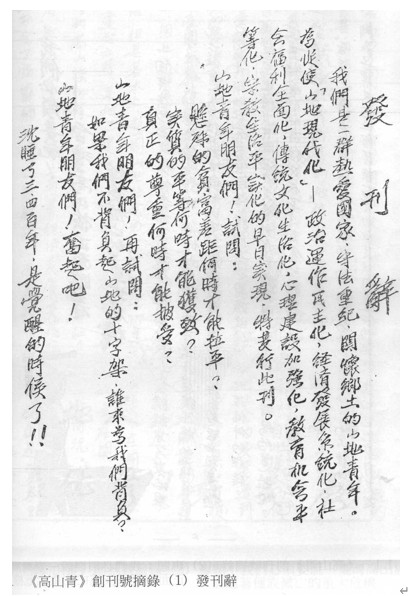 發刊辭
我們是一群熱愛國家、守法重紀、關懷鄉土的山地青年。
為促使「山地現代化」—政治運作民主化，經濟發展系統化，社
會福利全面化，傳統文化生活化，心理建設加強化，教育機會平
等化，宗教生活平談化的早日實現，特發行此刊。
山地青年朋友們！試問：
懸殊的貧富差距何時才能拉平？
實質的平等何時才能獲致？
真正的尊重何時才能被受？
山地青年朋友們！再試問：
如果我們不背負起山地的十字架，誰來為我們背負？
山地青年朋友們！奮起吧！
沈睡了三、四百年，是覺醒的時候了!!
《高山青》創刊號摘錄（1）發刊辭